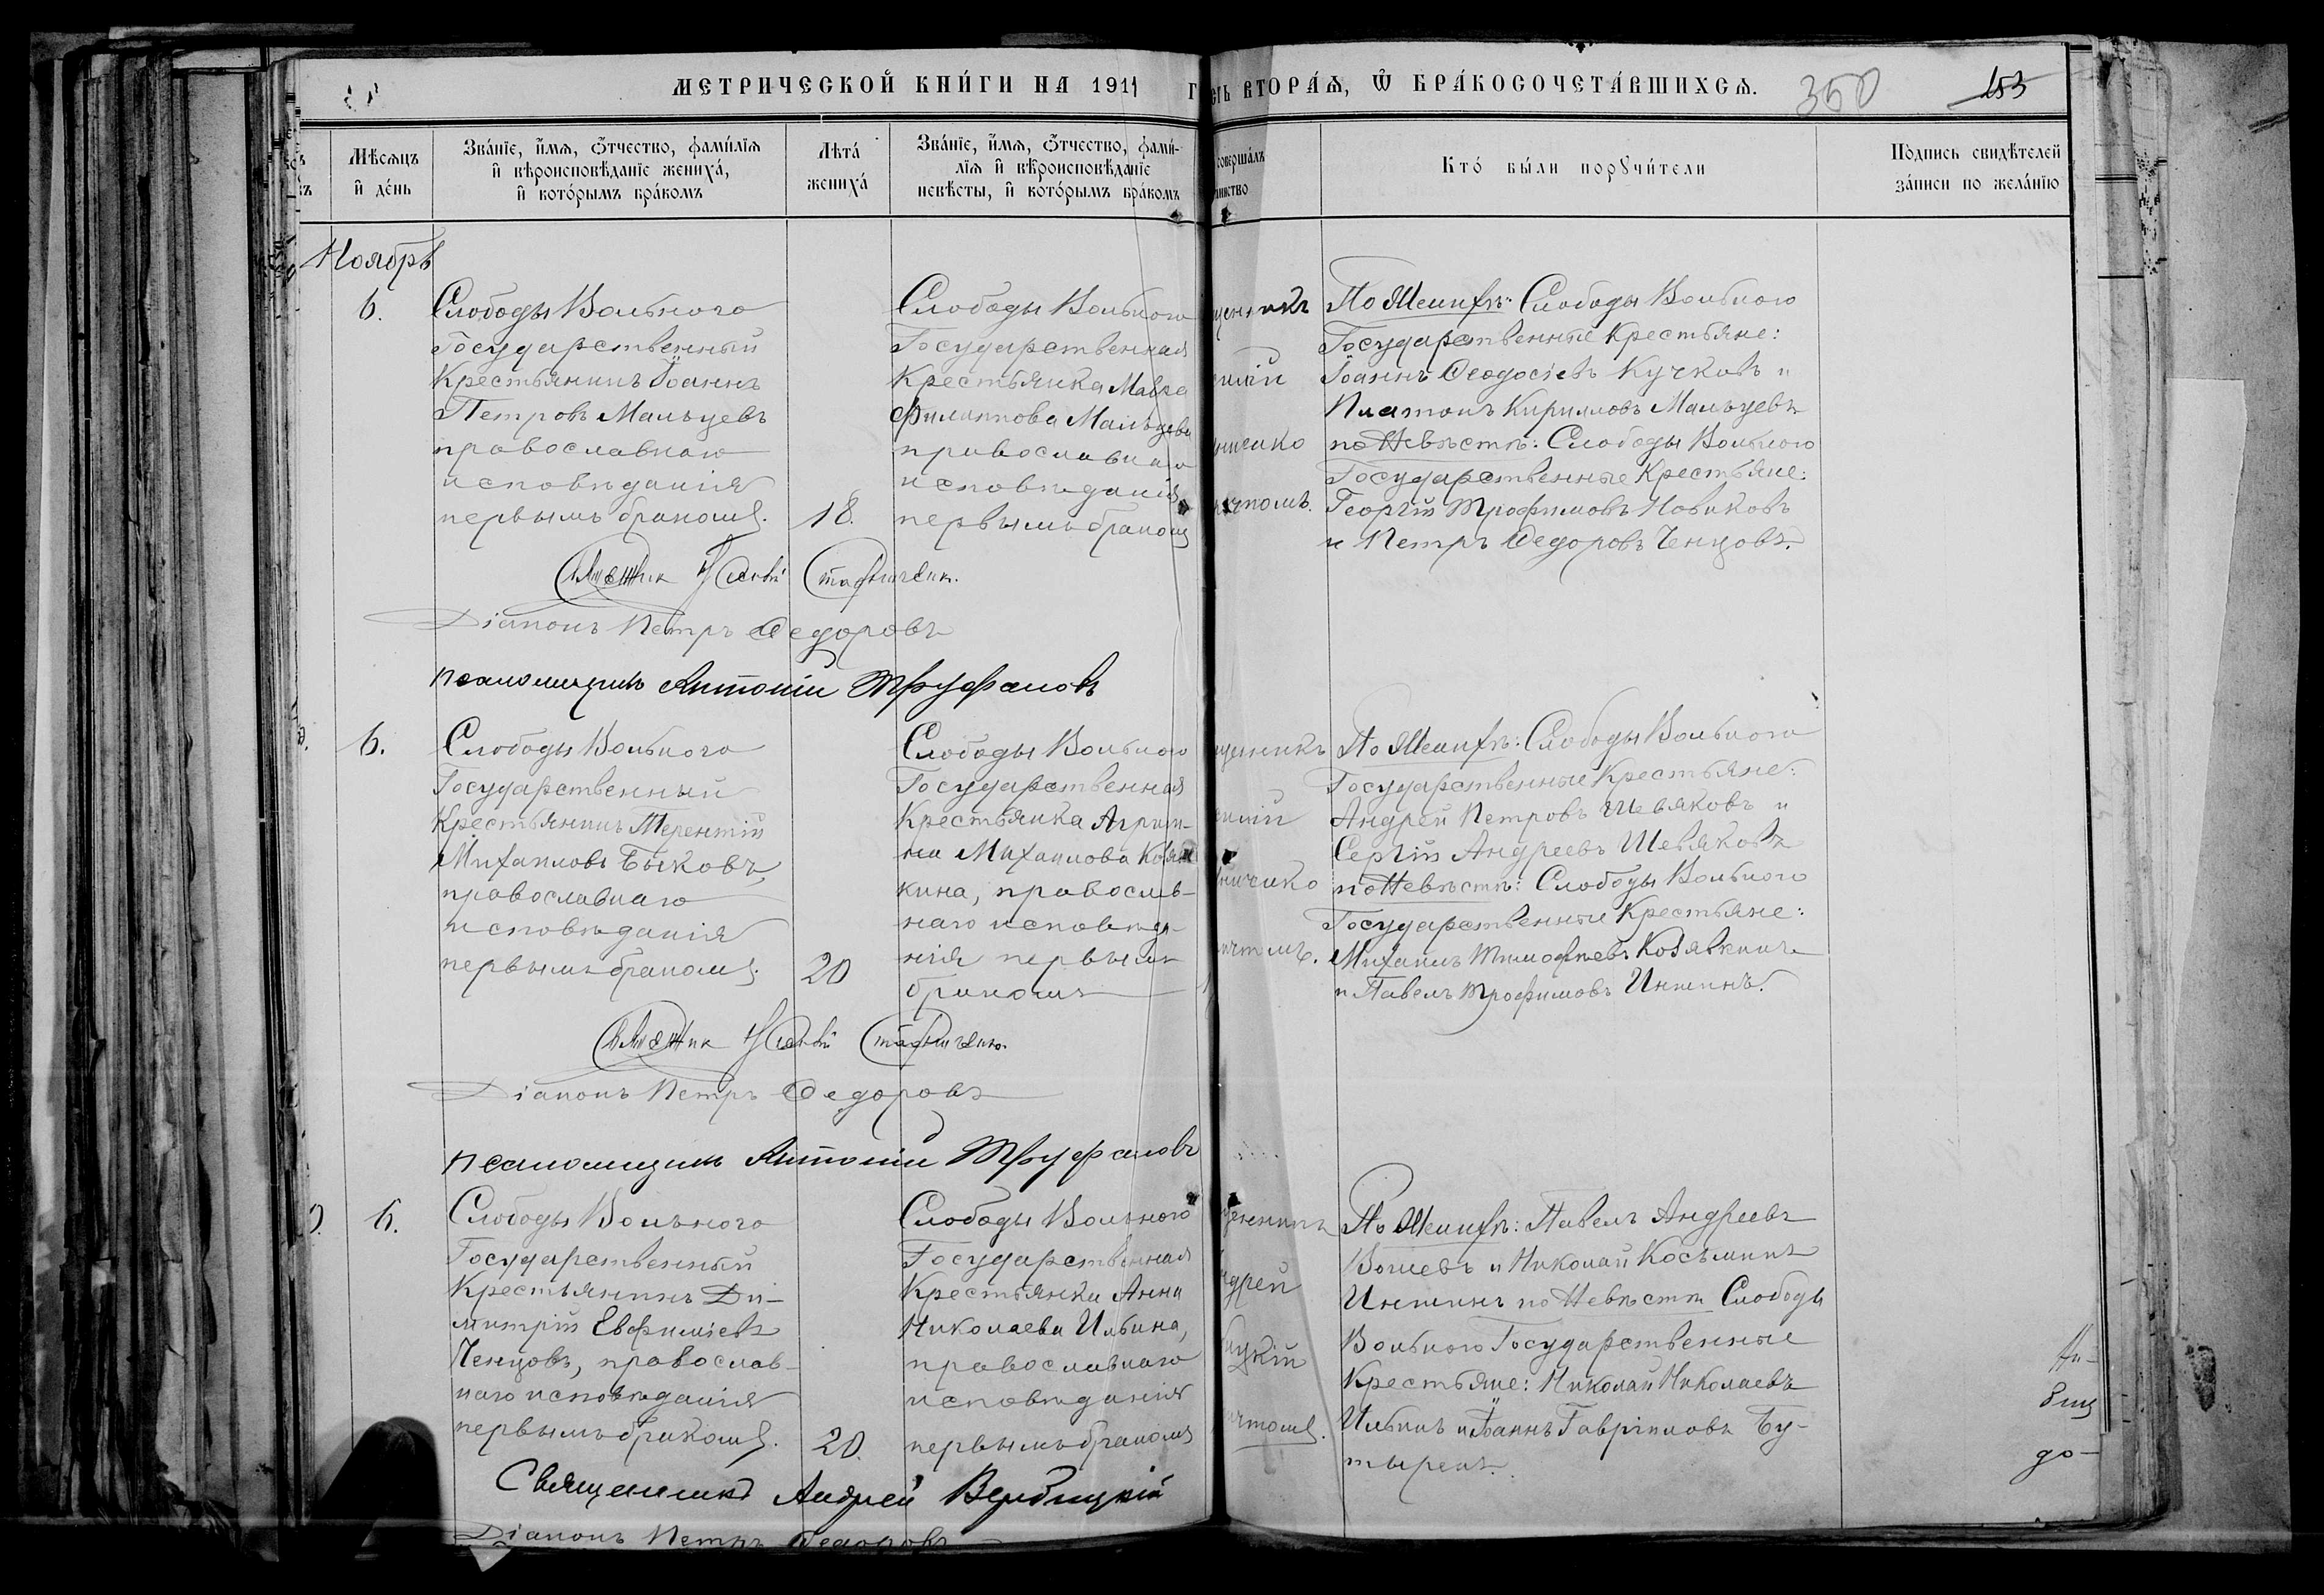 МЕТРИЧЕСКОЙ КНИ́ГИ НА 1911
ВТОРА́Я, Ѿ БРА́КОСОЧЕТА́ВШИХСЯ.
350
153
Мѣсяцъ
и҆ де́нь
Зва́нїе, и҆́мя, ѻ҆́тчество, фами́лїя
и҆ вѣроисповѣ́данїе жениха́,
и҆ кото́рымъ бра́комъ
Лѣта̀
жениха́
Зва́нїе, и҆́мя, ѻ҆́тчество, фами́-
лїя и҆ вѣроисповѣ́данїе
невѣ́сты, и҆ кото́рымъ бра́комъ
соверша́лъ
Кто́ бы́ли порꙋчи́тели
По́дпись свидѣ́телей
за́писи по жела́нїю
Ноябрь
6.
Слободы Вольного
Государственный
Крестьянинъ Іоаннъ
Петровъ Мальцевъ
православнаго
исповѣданія
первымъ бракомъ.
18.
Слободы Вольного
Государственная
Крестьянка Мавра
Филиппова Мальцева
православнаго
исповѣданія
первымъ бракомъ
По Женихѣ: Слободы Вольного
Государственные Крестьяне:
Іоаннъ Ѳеодосіевъ Кучковъ и
Платонъ Кирилловъ Мальцевъ
по Невѣстѣ: Слободы Вольного
Государственные Крестьяне:
Георгій Трофимовъ Новиковъ
и Петръ Ѳедоровъ Ченцовъ.
Діаконъ Петръ Ѳедоровъ
псаломщикъ Антоній Труфановъ
6.
Слободы Вольного
Государственный
Крестьянинъ Терентій
Михаиловъ Быковъ,
православнаго
исповѣданія
первымъ бракомъ.
20
Слободы Вольного
Государственная
Крестьянка Агрипи-
на Михаилова Козяв
кина, православ-
наго исповѣда-
нія первымъ
бракомъ
По Женихѣ: Слободы Вольного
Государственные Крестьяне:
Андрей Петровъ Шевяковъ и
Сергій Андреевъ Шевяковъ
по Невѣстѣ: Слободы Вольного
Государственные Крестьяне:
Михаилъ Тимофѣевъ Козявкинъ
и Павелъ Трофимовъ Иншинъ.
Діаконъ Петръ Ѳедоровъ
псаломщикъ Антоній Труфановъ
6.
Слободы Вольного
Государственный
Крестьянинъ Ди-
митрій Евфиміевъ
Ченцовъ, православ-
наго исповѣданія
первымъ бракомъ.
20.
Слободы Вольного
Государственная
Крестьянка Анна
Николаева Ильина,
православнаго
исповѣданія
первымъ бракомъ
По Женихѣ: Павелъ Андреевъ
и Николай Косьминъ
Иншинъ по Невѣстѣ Слободы
Вольного Государственные
Крестьяне: Николай Николаевъ
Ильинъ и Іоаннъ Гавріиловъ Бу-
до-
Священникъ Андрей Вербицкій
Діаконъ Петръ Ѳедоровъ